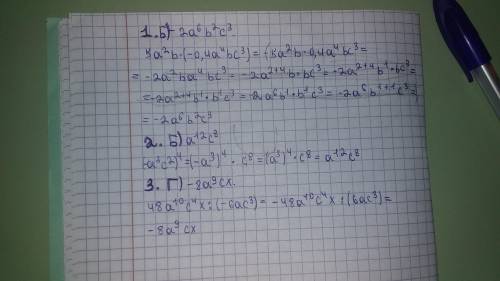 1. в) -2a⁶b²c³
5a²b·(-0,4a⁴bc³)=-5a²b·0,4a⁴bc³=
=-2a²ba⁴bc³=-2a²⁺⁴b·bc³=-2a²⁺⁴b¹·bc³=
=-2a²⁺⁴b¹·b¹c³=-2a⁶b¹·b¹c³=-2a⁶b¹⁺¹c³=
=-2a⁶b²c³
2. Б) a¹²c⁸
(-a³c²)⁴=(-a³)⁴·c⁸=(a³)⁴·c⁸=a¹²c⁸
3. Г) -8a⁹cx.
48a¹⁰c⁴x:(-6ac³)=-48a¹⁰c⁴x:(6ac³)=
-8a⁹cx